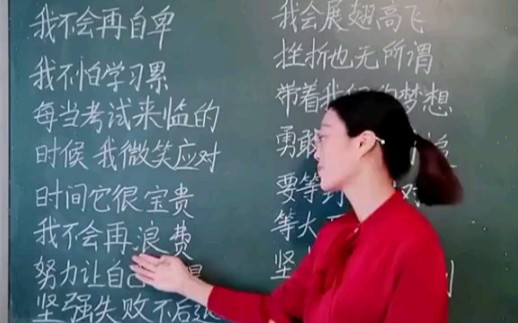 我不会再自卑
我不怕学习累
每当考试来临的
时候 我微笑应对
时间它很宝贵
我不会再浪费
努力让自己
坚强失败不后退
我会展翅高飞
挫折也无所谓
带着我 梦想
勇敢
要等到
等大
坚